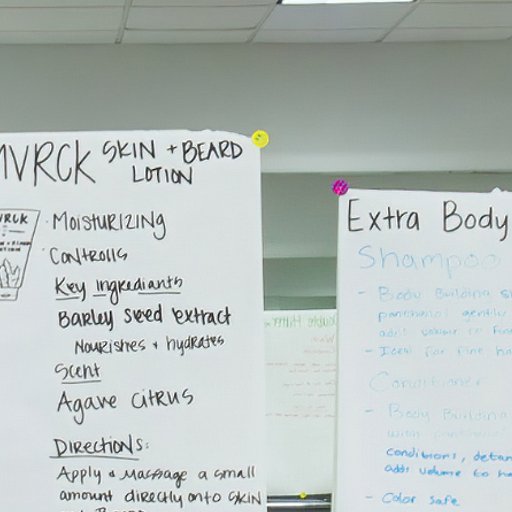 MVRCK SKIN + BEARD
LOTION
MOISTURIZING
CONTROLLS
Key Ingrediants
Barley seed extract
Nourishes + hydrates
Scent
Agave CITRUS
DIRECTIONS:
Apply & Massage a small
amount directly onto SKIN
Extra Body
Shampoo
- Body Building
panthanol gently
adds volume to fine
- Ideal for fine
Conditioner
- Body Building
with
conditions, detan
adds volume to
- Color safe